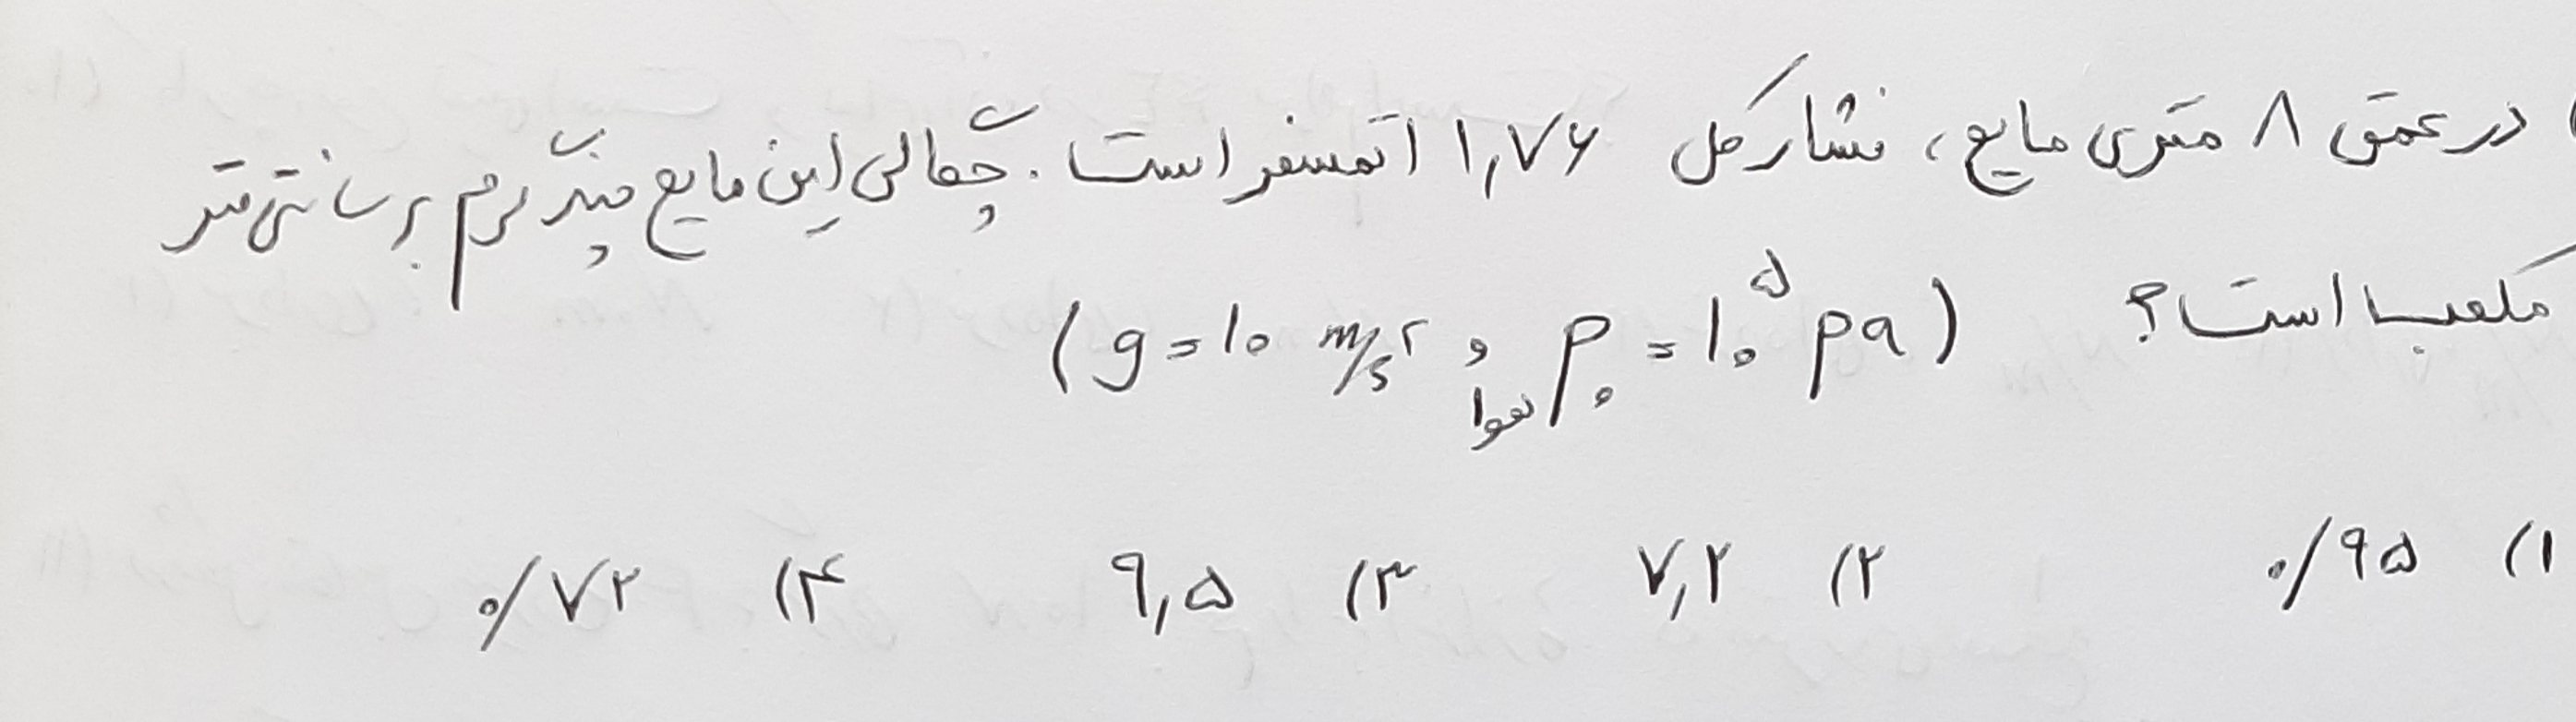 ) در عمق ۸ متری مایع، فشار کل ۱٫۷۶ اتمسفر است. چگالی این مایع چند گرم بر سانتی متر
مکعب است؟ (g = ۱۰ m/s۲ و P۰ هوا = ۱۰^۵ pa)
۱) ۰/۹۵ ۲) ۷٫۲ ۳) ۹٫۵ ۴) ۰/۷۲